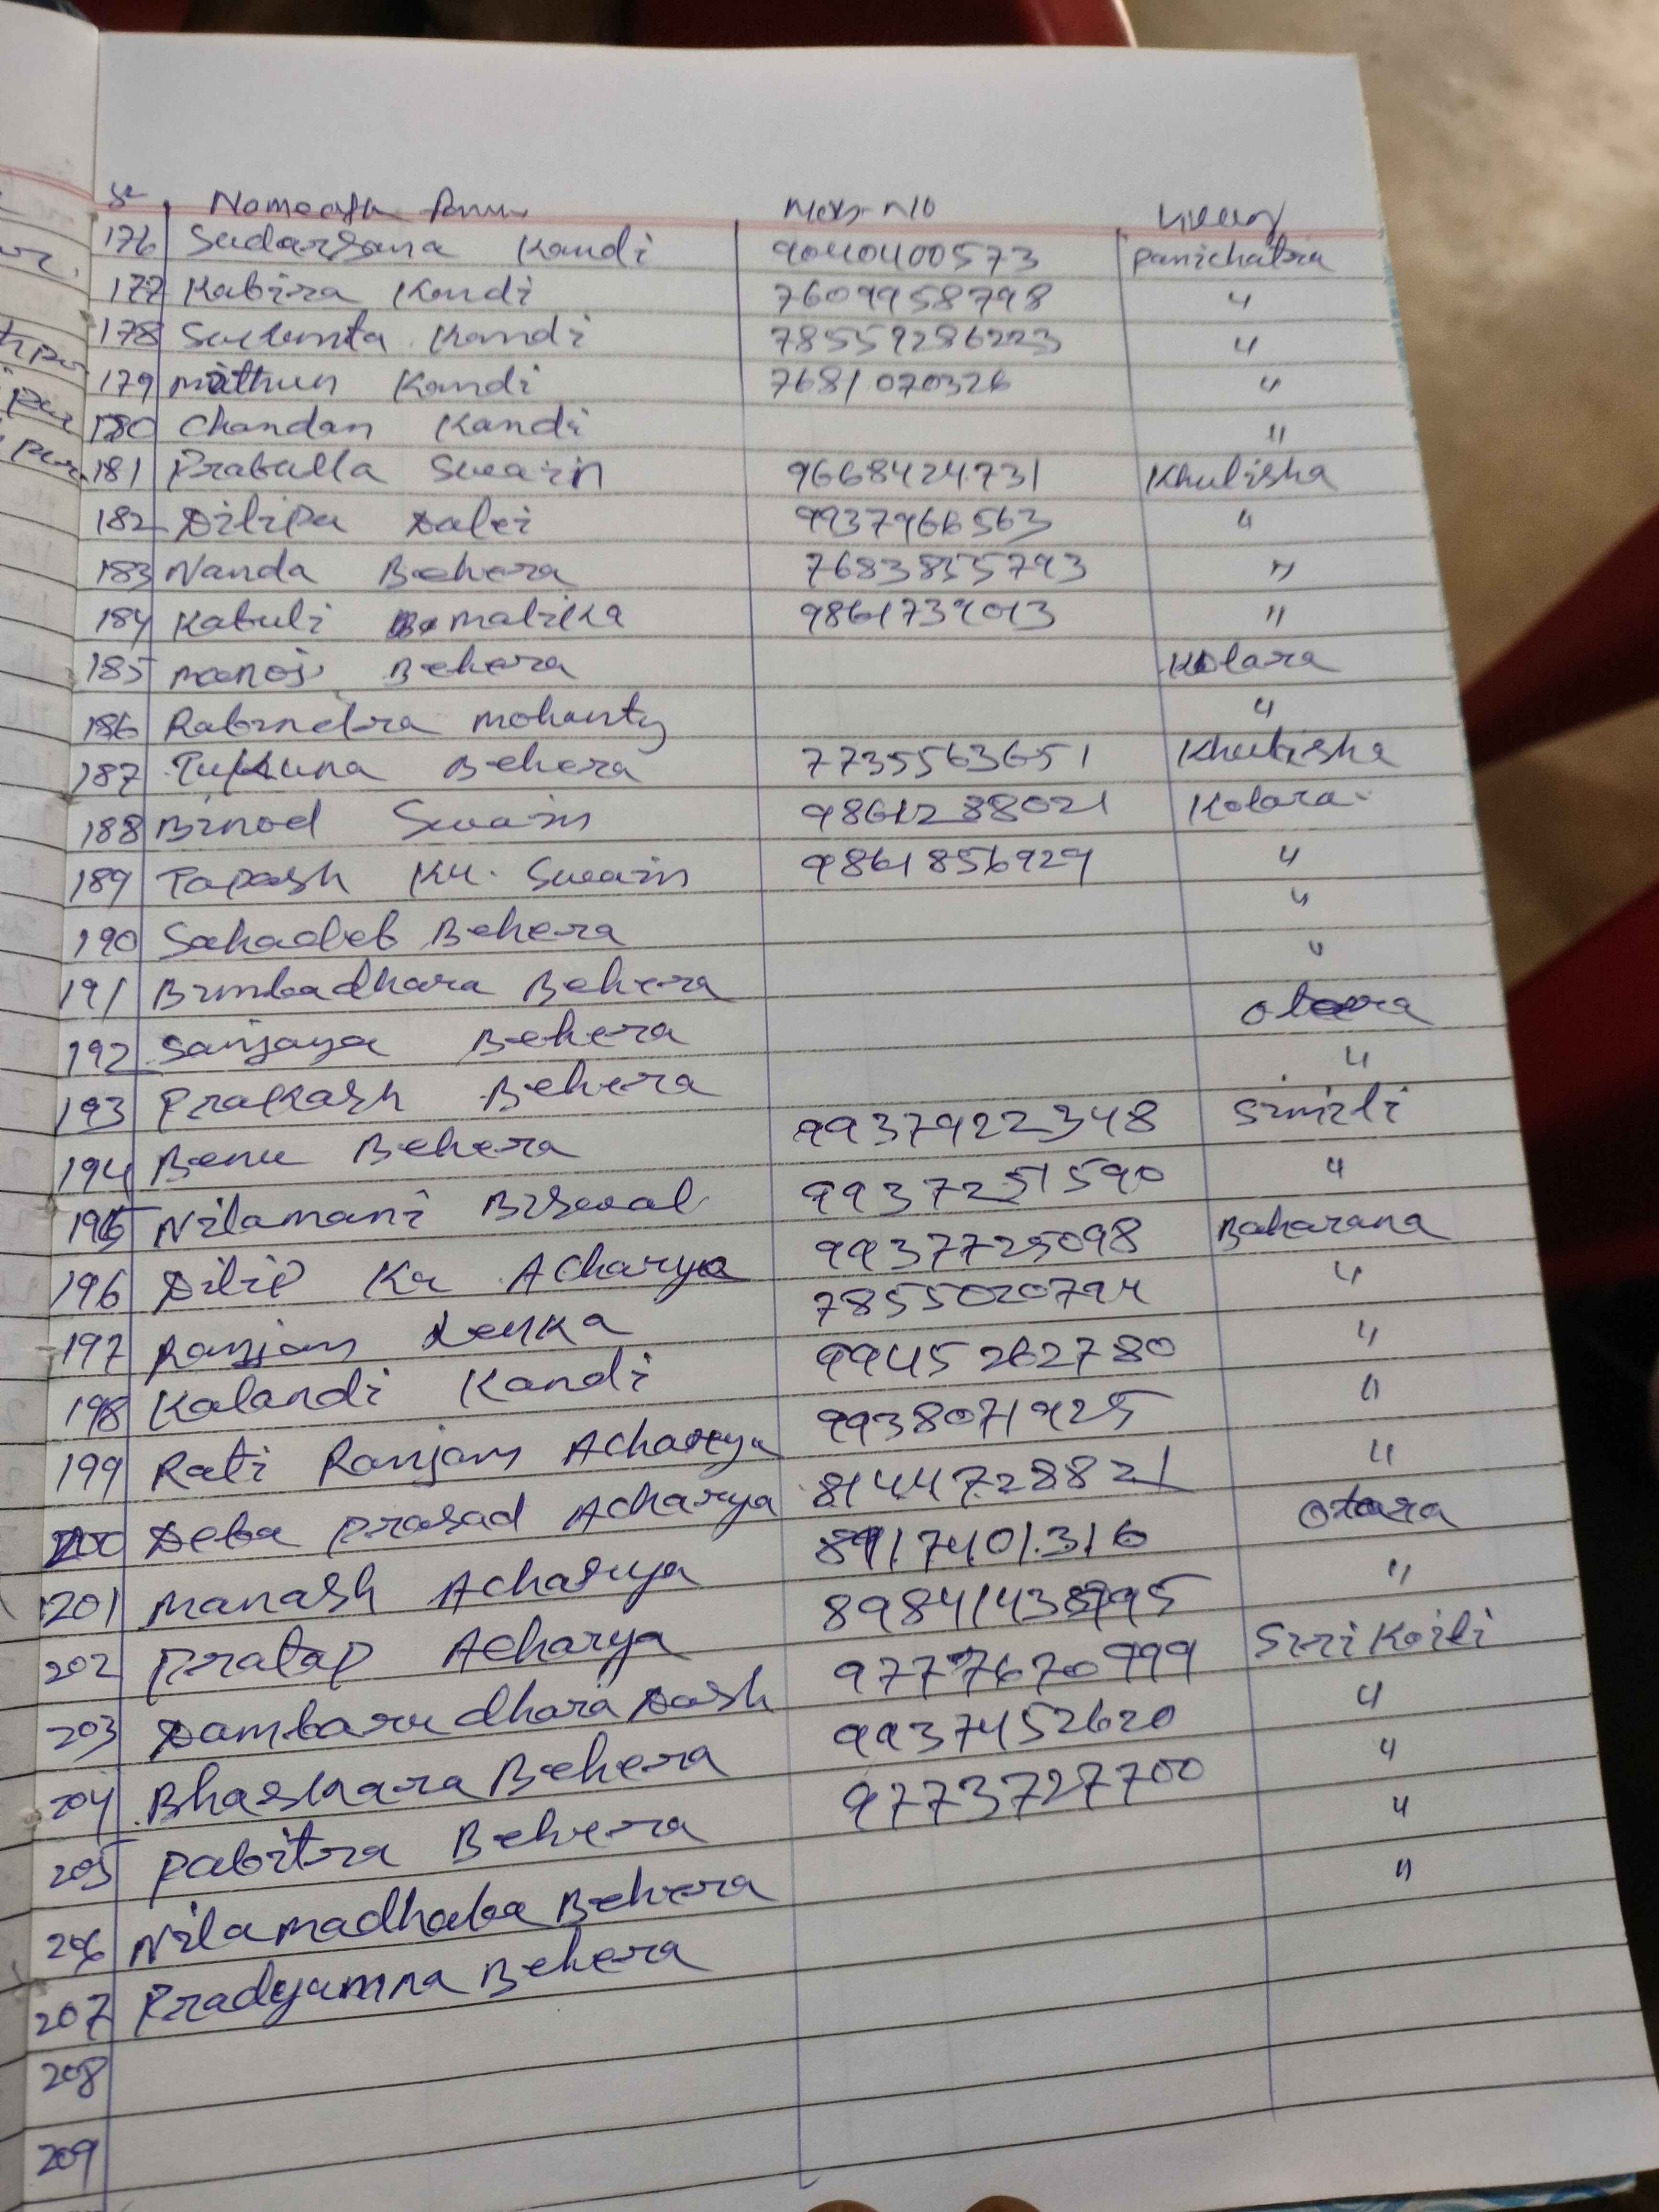 Sl Name of the Farmer Mob-NO Village
176 Sudarsana Kandi 9040400573 Panichatra
177 Kabira Kandi 7609958798 "
178 Sukumta Kandi 78559286223 "
179 Mithun Kandi 7681070326 "
180 Chandan Kandi "
181 Prabulla Swain 9668424731 Khulisha
182 Dilipa Dalei 9937966563 "
183 Nanda Behera 7683835793 "
184 Kabuli malika 9861739013 "
185 Manoj Behera Kolara
186 Rabindra mohanty "
187 Tukuna Behera 7735563651 Khulisha
188 Binod Swain 9861288021 Kolara
189 Tapash Ku. Swain 9861856929 "
190 Sahadeb Behera "
191 Bimbadhara Behera "
192 Sanjaya Behera Otara
193 Prakash Behera "
194 Benu Behera 9937922348 Simili
195 Nilamani Biswal 9937251590 "
196 Dilip Ku Acharya 9937725098 Baharana
197 Ranjan Lenka 7855020794 "
198 Kalandi Kandi 9945262780 "
199 Rati Ranjan Acharya 9938071925 "
200 Deba Prasad Acharya 8144728821 "
201 Manash Acharya 8917401316 Otara
202 Pratap Acharya "
203 Dambarudhara Dash 9777670999 Siri Koili
204 Bhaskara Behera 9937452620 "
205 Pabitra Behera 9773727700 "
206 Nilamadhaba Behera "
207 Pradyumna Behera "
208
209